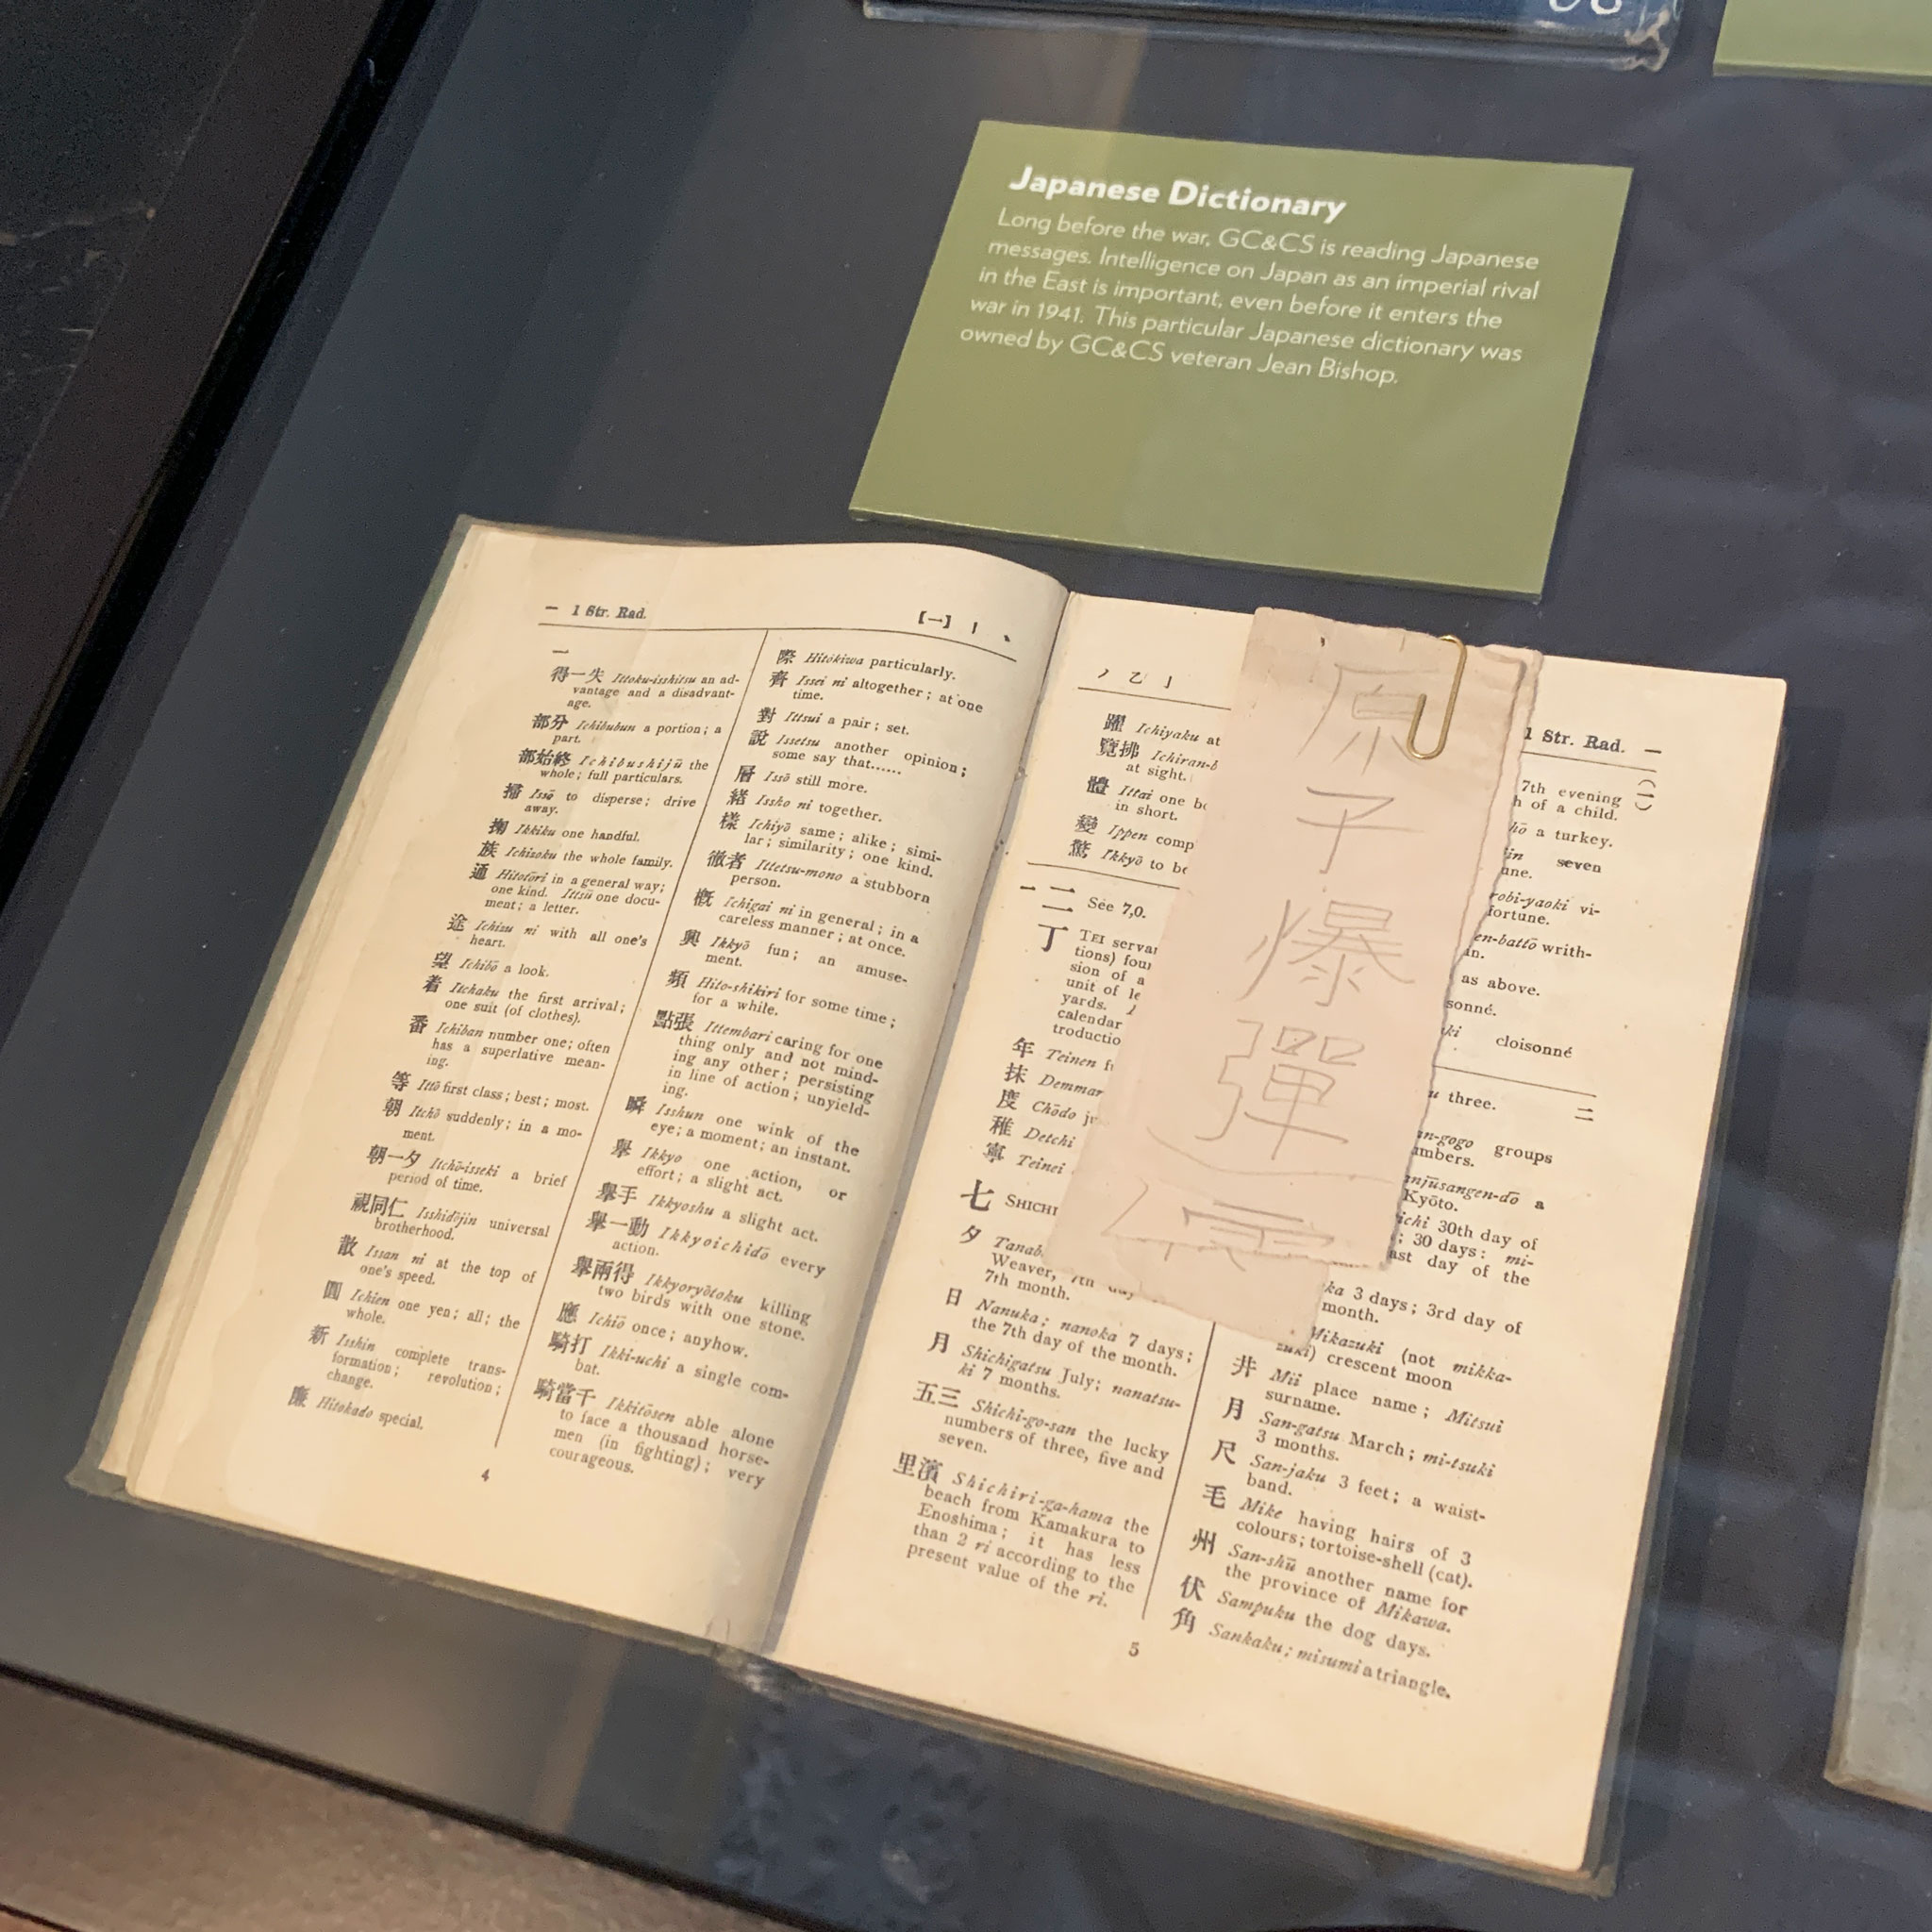 Japanese Dictionary
Long before the war, GC&CS is reading Japanese
messages. Intelligence on Japan as an imperial rival
in the East is important, even before it enters the
war in 1941. This particular Japanese dictionary was
owned by GC&CS veteran Jean Bishop.
一 1 Str. Rad.
【一】 丨 丶
一
得一失 Ittoku-isshitsu an ad-
vantage and a disadvant-
age.
部分 Ichibubun a portion; a
part.
部始終 Ichibushijū the
whole; full particulars.
掃 Issō to disperse; drive
away.
掬 Ikkiku one handful.
族 Ichizoku the whole family.
通 Hitotōri in a general way;
one kind. Ittsū one docu-
ment; a letter.
途 Ichizu ni with all one's
heart.
望 Ichibō a look.
着 Itchaku the first arrival;
one suit (of clothes).
番 Ichiban number one; often
has a superlative mean-
ing.
等 Ittō first class; best; most.
朝 Itchō suddenly; in a mo-
ment.
朝一夕 Itchō-isseki a brief
period of time.
視同仁 Isshidōjin universal
brotherhood.
散 Issan ni at the top of
one's speed.
圓 Ichien one yen; all; the
whole.
新 Isshin complete trans-
formation; revolution;
change.
廉 Hitokado special.
4
際 Hitokiwa particularly.
齊 Issei ni altogether; at one
time.
對 Ittsui a pair; set.
說 Issetsu another opinion;
some say that......
層 Issō still more.
緒 Issho ni together.
樣 Ichiyō same; alike; simi-
lar; similarity; one kind.
徹者 Ittetsu-mono a stubborn
person.
槪 Ichigai ni in general; in a
careless manner; at once.
興 Ikkyō fun; an amuse-
ment.
頻 Hito-shikiri for some time;
for a while.
點張 Ittembari caring for one
thing only and not mind-
ing any other; persisting
in line of action; unyield-
ing.
瞬 Isshun one wink of the
eye; a moment; an instant.
擧 Ikkyo one action, or
effort; a slight act.
擧手 Ikkyoshu a slight act.
擧一動 Ikkyoichidō every
action.
擧兩得 Ikkyoryōtoku killing
two birds with one stone.
應 Ichiō once; anyhow.
騎打 Ikki-uchi a single com-
bat.
騎當千 Ikkitōsen able alone
to face a thousand horse-
men (in fighting); very
courageous.
丿 乙 亅
躍 Ichiyaku at
覽拂 Ichiran-b
at sight.
體 Ittai one
in short.
變 Ippen comp
驚 Ikkyō to be
一 二 See 7,0.
丁 TEI
tions) four
sion of a
unit of
yards.
calendar
年 Teinen
抹 Demmar
度 Chōdo
稚 Detchi
寧 Teinei
七 SHICHI
夕 Tanab
Weaver, 7th day
7th month.
日 Nanuka; nanoka 7 days;
the 7th day of the month.
月 Shichigatsu July; nanatsu-
ki 7 months.
五三 Shichi-go-san the lucky
numbers of three, five and
seven.
里濱 Shichiri-ga-hama the
beach from Kamakura to
Enoshima; it has less
than 2 ri according to the
present value of the ri.
5
原子爆彈
1 Str. Rad. 一
7th evening
of a child.
a turkey.
seven
robi-yaoki vi-
fortune.
en-battō writh-
as above.
cloisonné
three.
二
an-gogo groups
anjūsangen-dō a
Kyōto.
30th day of
; 30 days: mi-
day of the
3 days; 3rd day of
month.
Mikazuki (not mikka-
zuki) crescent moon
井 Mii place name; Mitsui
surname.
月 San-gatsu March; mi-tsuki
3 months.
尺 San-jaku 3 feet; a waist-
band.
毛 Mike having hairs of 3
colours; tortoise-shell (cat).
州 San-shū another name for
the province of Mikawa.
伏 Sampuku the dog days.
角 Sankaku; misumi a triangle.